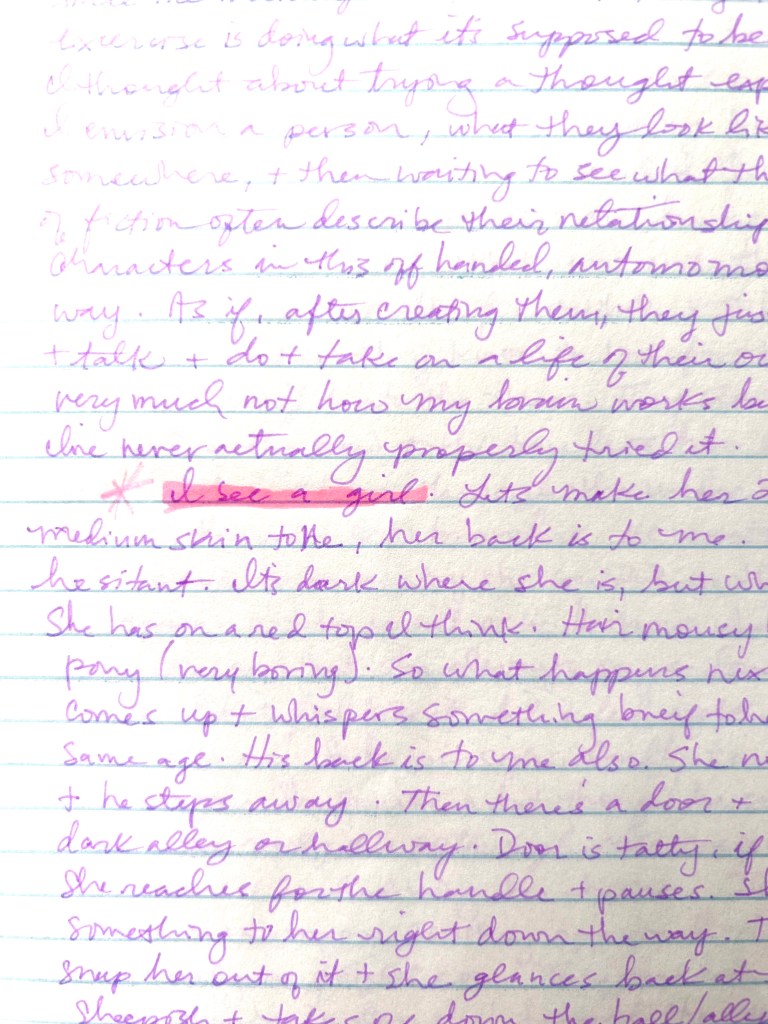 exercise is doing what it's supposed to be
I thought about trying a thought exp
I envision a person, what they look lik
somewhere, + then waiting to see what th
of fiction often describe their relationship
characters in this off handed, automomo
way. As if, after creating them, they jus
+ talk + do + take on a life of their ow
very much not how my brain works bu
I've never actually properly tried it.
* I see a girl. Lets make her 2
medium skin tone, her back is to me.
hesitant. It's dark where she is, but wh
She has on a red top I think. Hair mousy
pony (very boring). So what happens nex
comes up + whispers something breif to he
same age. His back is to me also. She n
+ he steps away. Then there's a door +
dark alley or hallway. Door is tatty, if
She reaches for the handle + pauses. Sh
something to her right down the way. T
snap her out of it + she glances back at
Sheepish + takes down the hall/alley